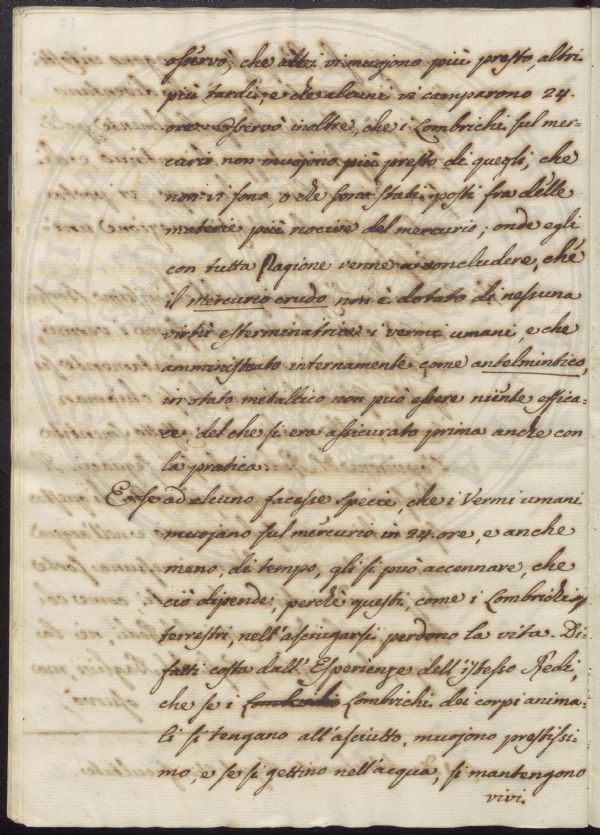 osservò, che altri vi muojono più presto, altri
più tardi, e che alcuni vi camparono 24.
ore. Osservò inoltre, che i Lombrichi sul mer-
curio non muojono più presto di quegli, che
non vi sono, o che sono stati posti fra delle
materie più nocive del mercurio; onde egli
con tutta Ragione venne a concludere, che
il mercurio crudo non è dotato di nessuna
virtù esterminatrice i vermi umani, e che
amministrato internamente come antelmintico,
in stato metallico non può essere niente effica-
ce, del che si era assicurato prima anche con
la pratica.
E se ad alcuno facesse specie, che i Vermi umani
muojano sul mercurio in 24. ore, e anche
meno, di tempo, gli si può accennare, che
ciò dipende, perchè questi, come i Lombrichi
terrestri, nell'asciugarsi perdono la vita. Di-
fatti costa dall'Esperienze dell'istesso Redi,
che se i Lombrichi dei corpi anima-
li si tengano all'asciutto, muojono prestissi-
mo, e se si gettino nell'acqua, si mantengono
vivi.